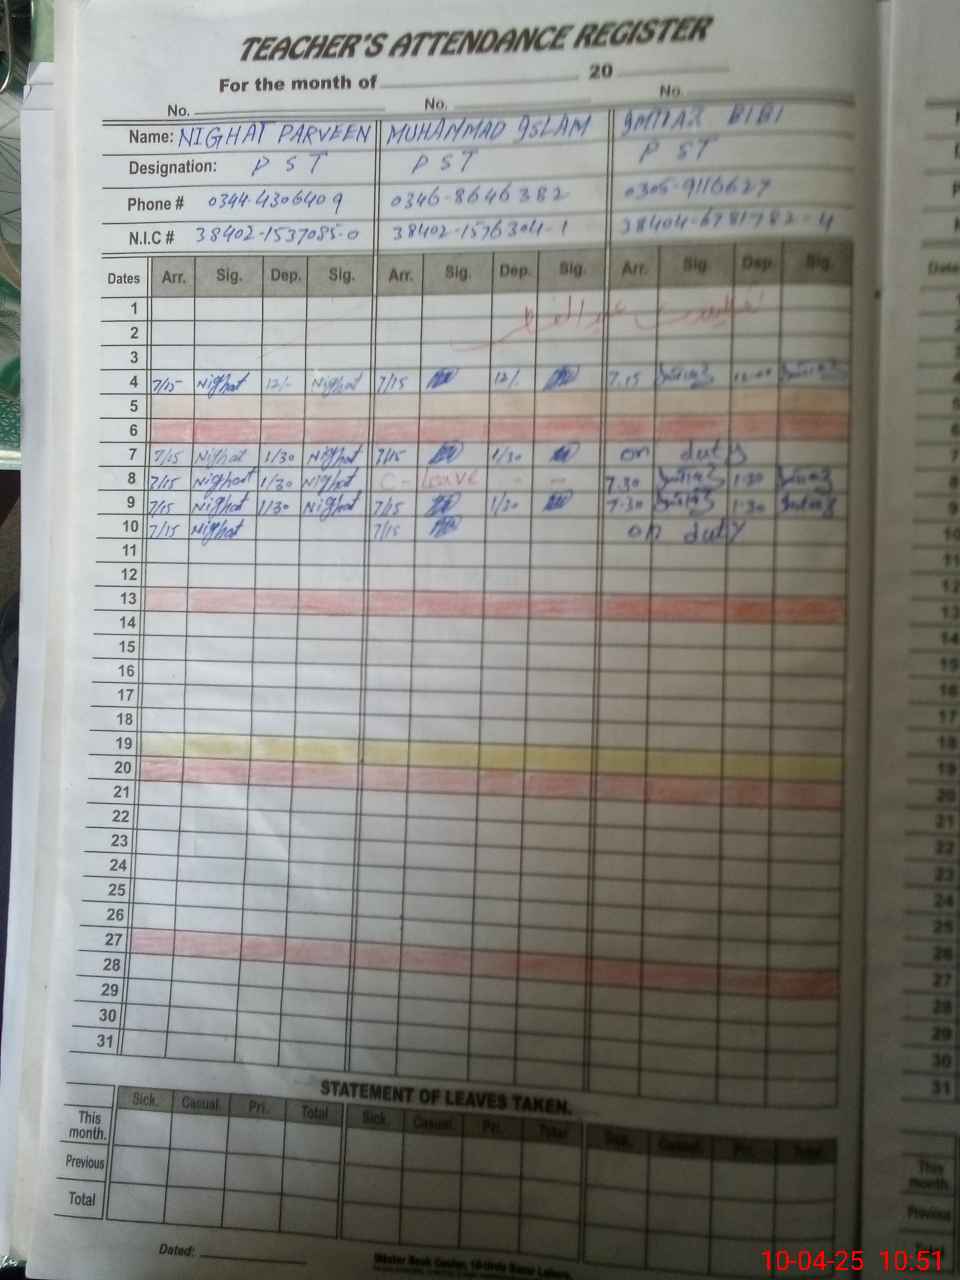 TEACHER'S ATTENDANCE REGISTER
For the month of 20
No. No. No.
Name: NIGHAT PARVEEN MUHAMMAD ISLAM IMTIAZ BIBI
Designation: P S T P S T P ST
Phone # 0344-4306409 0346-8646382 0305-9116627
N.I.C # 38402-1537085-0 38402-1576304-1 38404-6781782-4
Dates Arr. Sig. Dep. Sig. Arr. Sig. Dep. Sig. Arr. Sig. Dep. Sig.
1
2
3
4 7/15 Nighat 12/- Nighat 7/15 12/- 7.15 12.00
5
6
7 7/15 Nighat 1/30 Nighat 7/15 1/30 on duty
8 7/15 Nighat 1/30 Nighat C- Leave - - 7.30 Imtiaz 1.30 Imtiaz
9 7/15 Nighat 1/30 Nighat 7/15 1/30 7.30 Imtiaz 1.30 Imtiaz
10 7/15 Nighat 7/15 on duty
11
12
13
14
15
16
17
18
19
20
21
22
23
24
25
26
27
28
29
30
31
STATEMENT OF LEAVES TAKEN.
Sick. Casual. Pri. Total Sick. Casual. Pri. Total Sick. Casual. Pri. Total
This month.
Previous
Total
Dated:
10-04-25 10:51